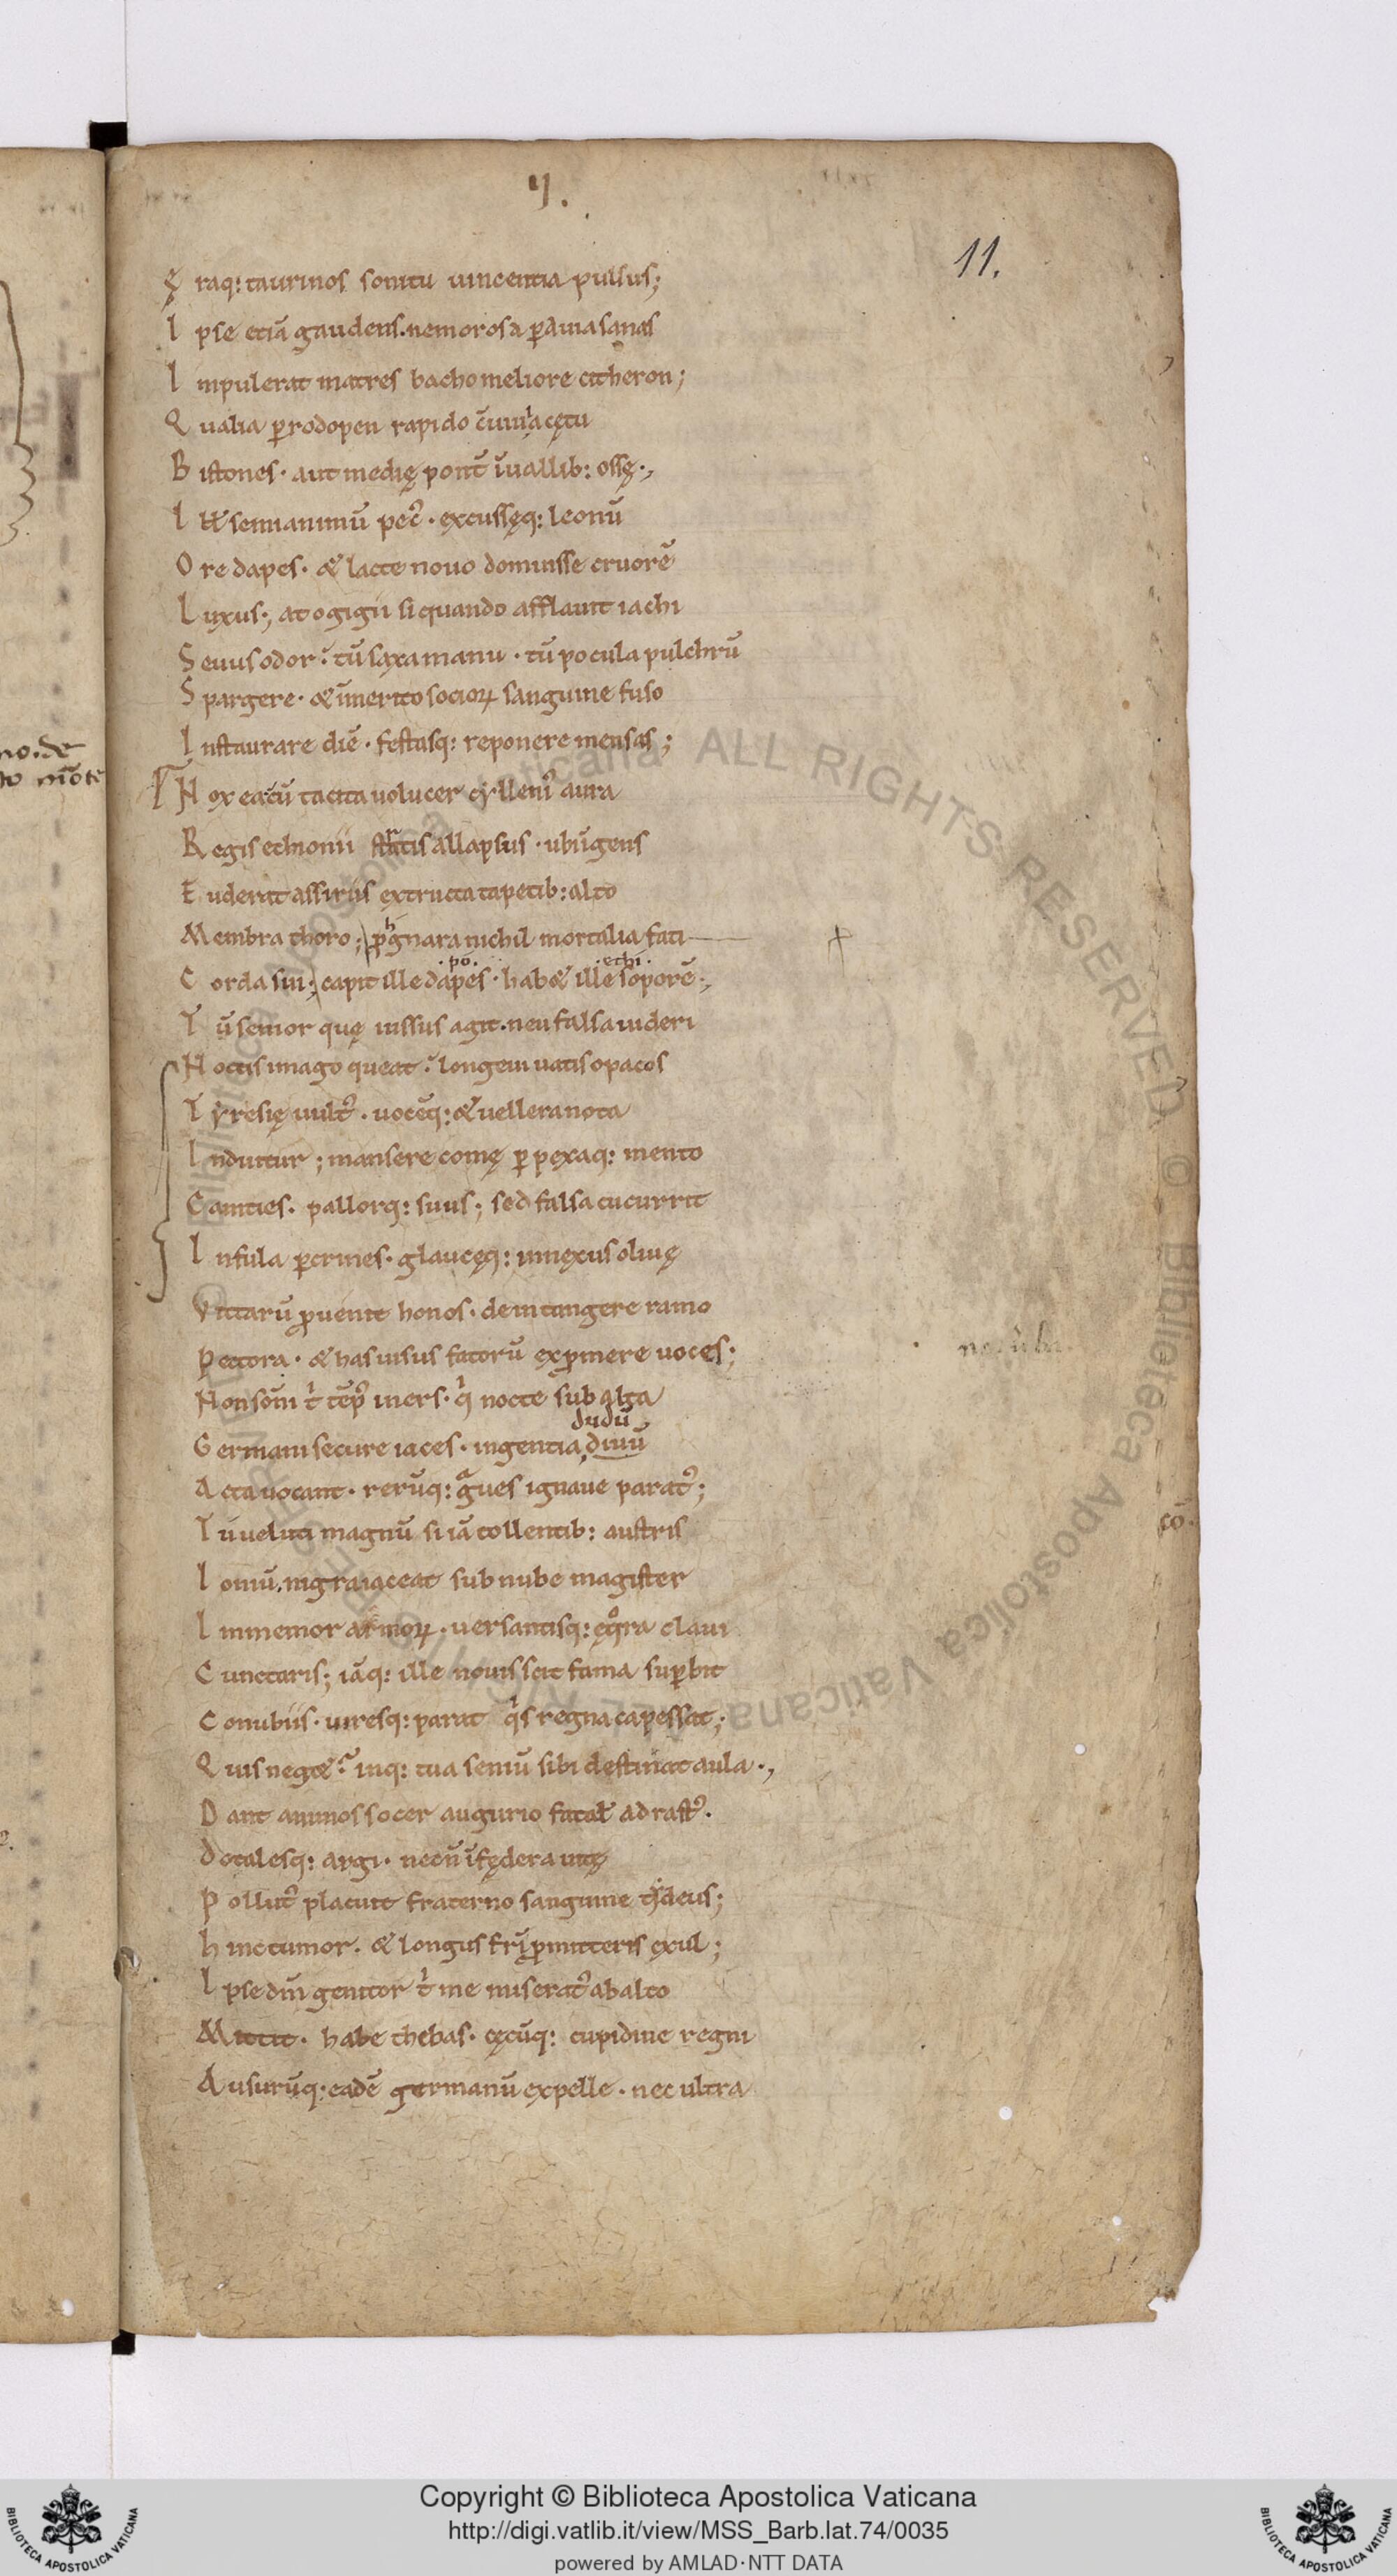 II.
11.
Ę raq: taurinos sonitu uincentia pulsus;
I pse etiã gaudens. nemorosa p auia sanas
I npulerat matres bacho meliore citheron;
Q ualia p rodopen rapido cũuiuia cętu
B istones. aut medię ponũt ĩuallib: ossę.,
I ll' semianimũ pec'. excussęq: leonũ
O re dapes. & lacte nouo domuisse cruorẽ
L uxus; at ogigii siquando afflauit iachi
S euus odor. tũ saxa manu. tũ pocula pulchrũ
S pargere. & ĩmerito socioꝝ sanguine fuso
I nstaurare diẽ. festasq: reponere mensas;
N ox ea cũ tacita uolucer cẏlleni' aura
R egis echionii stratis allapsus. ubi ĩgens
F uderat assiriis extructa tapetib: alto
M embra thoro; p gnara nichil mortalia fati
.po. .echi.
C orda sui; capit ille dapes. hab& ille soporẽ.,
T ũ senior quę iussus agit. neu falsa uideri
N octis imago queat. longeui uatis opacos
T ẏresię uult'. uocẽq: & uellera nota
I nduitur; mansere comę p pexaq: mento
C anities. pallorq: suus; sed falsa cucurrit
I nfula p crines. glaucęq: innexus oliuę
V ittarũ puenit honos. dein tangere ramo
P ectora. & has uisus fatorũ exp mere uoces;
N on sõni t' tẽp' iners. q' nocte sub alta
dudũ
G ermani secure iaces. ingentia, diuũ
A cta uocant. rerũq: g ues ignaue parat';
T ũ ueluti magnũ si iã tollentib: austris
I oniũ. nigra iaceat sub nube magister
I nmemor armoꝝ. uersantisq: ęquora claui
C unctaris; iãq: ille nouis scit fama supbit
C onubiis. uiresq: parat q's regna capessat;
Q uis neg&. inq: tua seniũ sibi destinat aula.,
D ant animos socer augurio fatal' adrast'.
D otalesq: argi. necñ ĩfędera uitę
P ollut' placuit fraterno sanguine tẏdeus;
H inc tumor. & longus frĩ p mitteris exul;
I pse dũi genitor t' me miserat' ab alto
M ittit. habe thebas. cęcũq: cupidine regni
A usurũq: eadẽ germanũ expelle. nec ultra